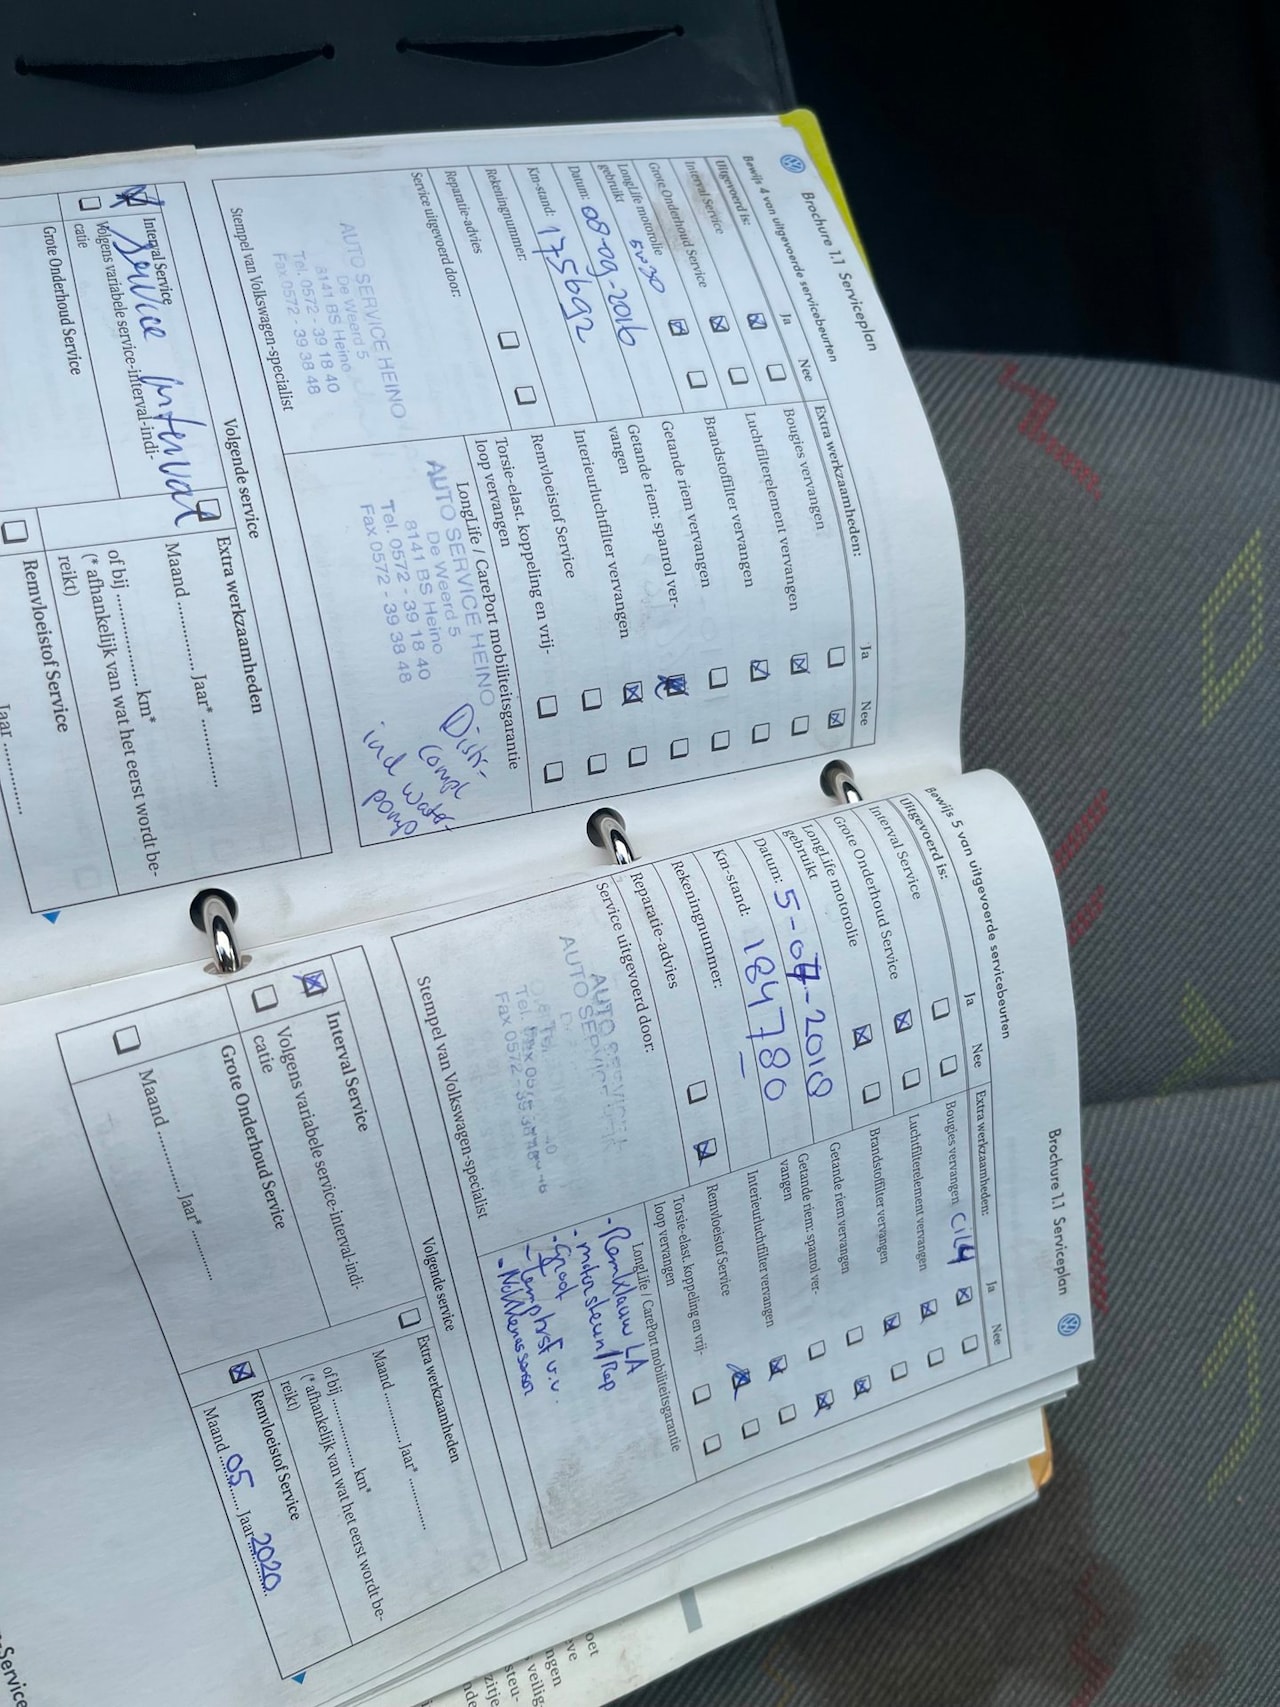 Brochure 1.1 Serviceplan
Bewijs 4 van uitgevoerde servicebeurten
Uitgevoerd is:
Ja
Nee
Interval Service
Grote Onderhoud Service
LongLife motorolie
gebruikt
5w30
Datum: 08-09-2016
Km-stand: 175692
Rekeningnummer:
Reparatie-advies
Service uitgevoerd door:
AUTO SERVICE HEINO
De Weerd 5
8141 BS Heino
Tel. 0572 - 39 18 40
Fax 0572 - 39 38 48
Stempel van Volkswagen-specialist
Extra werkzaamheden:
Ja
Nee
Bougies vervangen
Luchtfilterelement vervangen
Brandstoffilter vervangen
Getande riem vervangen
Getande riem: spanrol ver-
vangen
Interieurluchtfilter vervangen
Remvloeistof Service
Torsie-elast. koppeling en vrij-
loop vervangen
LongLife / CarePort mobiliteitsgarantie
AUTO SERVICE HEINO
De Weerd 5
8141 BS Heino
Tel. 0572 - 39 18 40
Fax 0572 - 39 38 48
Distr-
compl
incl water-
pomp
Volgende service
Interval Service
Service Interval
Volgens variabele service-interval-indi-
catie
Grote Onderhoud Service
Extra werkzaamheden
Maand .............. Jaar* ..............
of bij .................. km*
(* afhankelijk van wat het eerst wordt be-
reikt)
Remvloeistof Service
Jaar ..............
Brochure 1.1 Serviceplan
Bewijs 5 van uitgevoerde servicebeurten
Uitgevoerd is:
Ja
Nee
Interval Service
Grote Onderhoud Service
LongLife motorolie
gebruikt
Datum: 5-07-2018
Km-stand: 184780
Rekeningnummer:
Reparatie-advies
Service uitgevoerd door:
AUTO SERVICE
Fax 0572 - 39 38 48
Stempel van Volkswagen-specialist
Extra werkzaamheden:
Ja
Nee
Bougies vervangen Cil 4
Luchtfilterelement vervangen
Brandstoffilter vervangen
Getande riem vervangen
Getande riem: spanrol ver-
vangen
Interieurluchtfilter vervangen
Remvloeistof Service
Torsie-elast. koppeling en vrij-
loop vervangen
LongLife / CarePort mobiliteitsgarantie
- Remklauw LA
- motorsteun/Rep
- Groot
- Nokkenassensor
Volgende service
Interval Service
Volgens variabele service-interval-indi-
catie
Grote Onderhoud Service
Maand .............. Jaar* ..............
Extra werkzaamheden
Maand .............. Jaar* ..............
of bij .................. km*
(* afhankelijk van wat het eerst wordt be-
reikt)
Remvloeistof Service
Maand 05 Jaar 2020